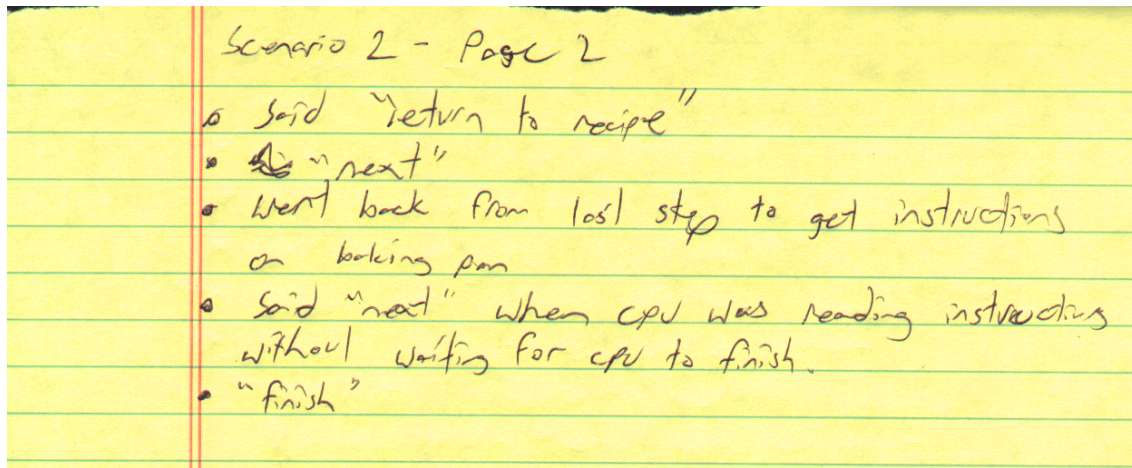 Scenario 2 - Page 2
• Said "return to recipe"
• "next"
• Went back from last step to get instructions
on baking pan
• Said "next" when cpu was reading instructions
without waiting for cpu to finish.
• "finish"